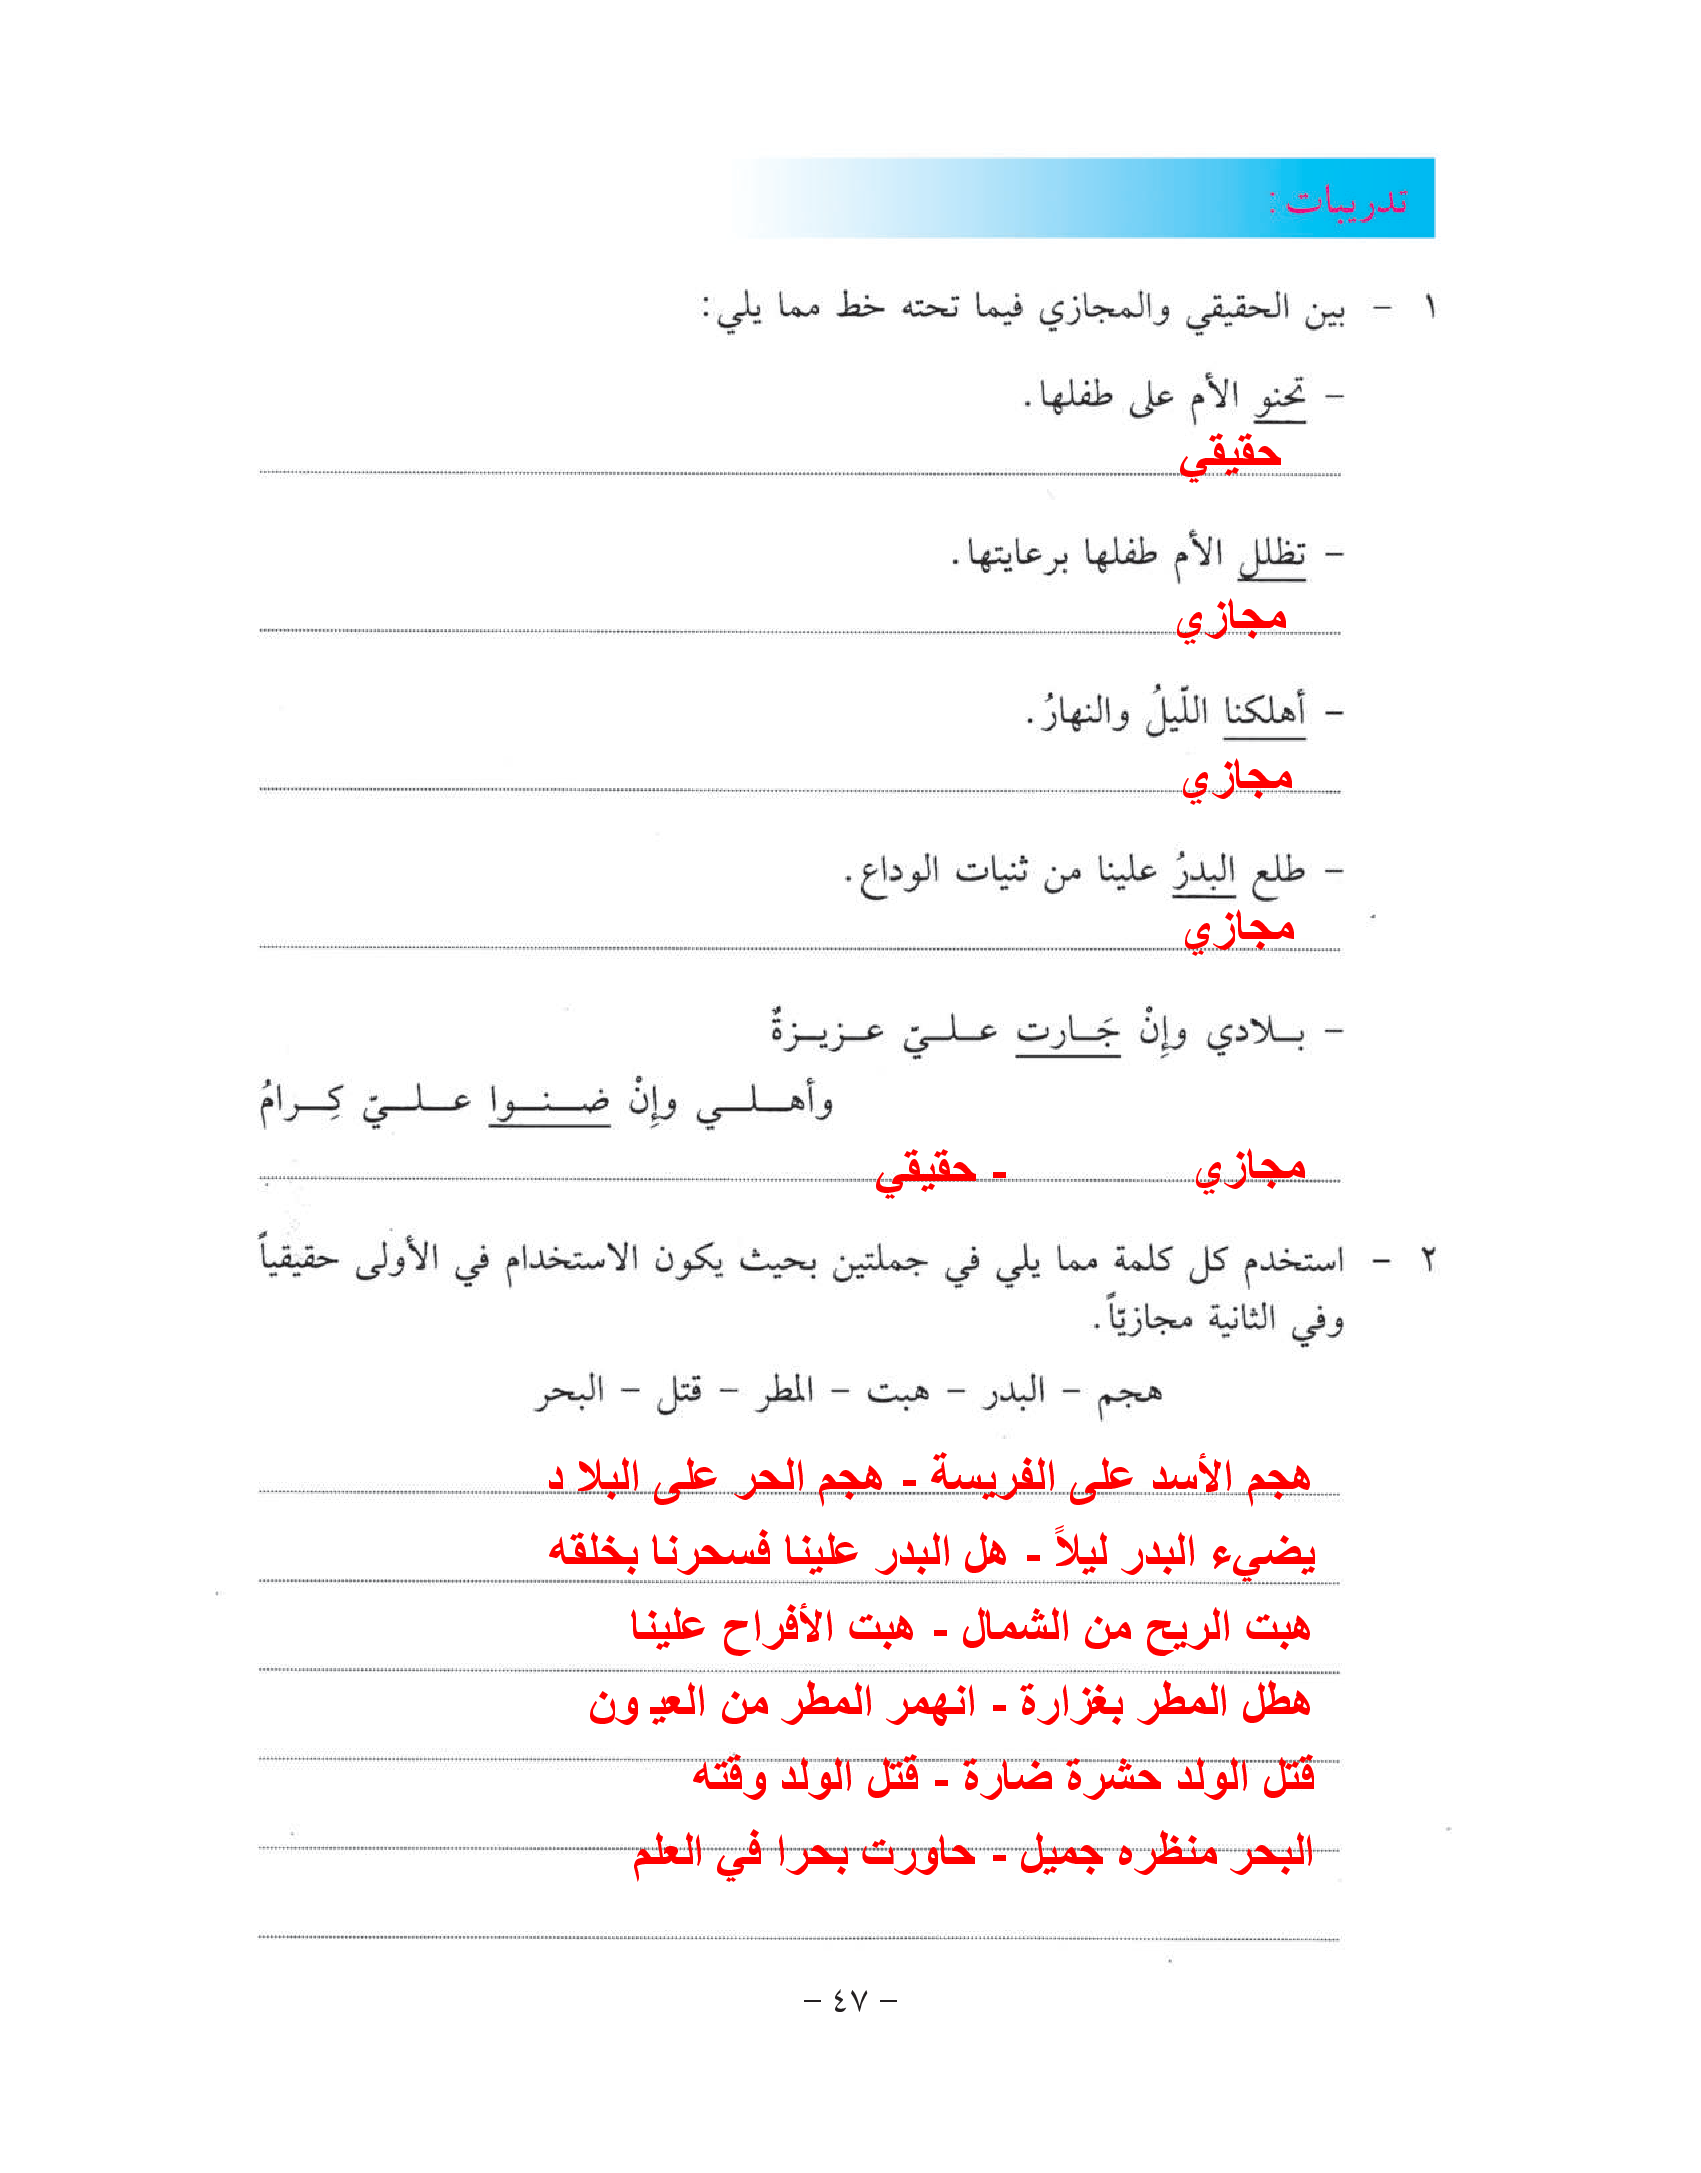 تدريبات :
١ - بين الحقيقي والمجازي فيما تحته خط مما يلي:
- تحنو الأم على طفلها.
حقيقي
- تظلل الأم طفلها برعايتها.
مجازي
- أهلكنا اللّيلُ والنهارُ.
مجازي
- طلع البدرُ علينا من ثنيات الوداع.
مجازي
- بـلادي وإنْ جَـارت عـلـيّ عـزيـزةٌ
وأهـلـي وإنْ ضـنـوا عـلـيّ كِـرامُ
مجازي - حقيقي
٢ - استخدم كل كلمة مما يلي في جملتين بحيث يكون الاستخدام في الأولى حقيقياً
وفي الثانية مجازيّاً.
هجم - البدر - هبت - المطر - قتل - البحر
هجم الأسد على الفريسة - هجم الحر على البلاد
يضيء البدر ليلاً - هل البدر علينا فسحرنا بخلقه
هبت الريح من الشمال - هبت الأفراح علينا
هطل المطر بغزارة - انهمر المطر من العيون
قتل الولد حشرة ضارة - قتل الولد وقته
البحر منظره جميل - حاورت بحرا في العلم
- ٤٧ -